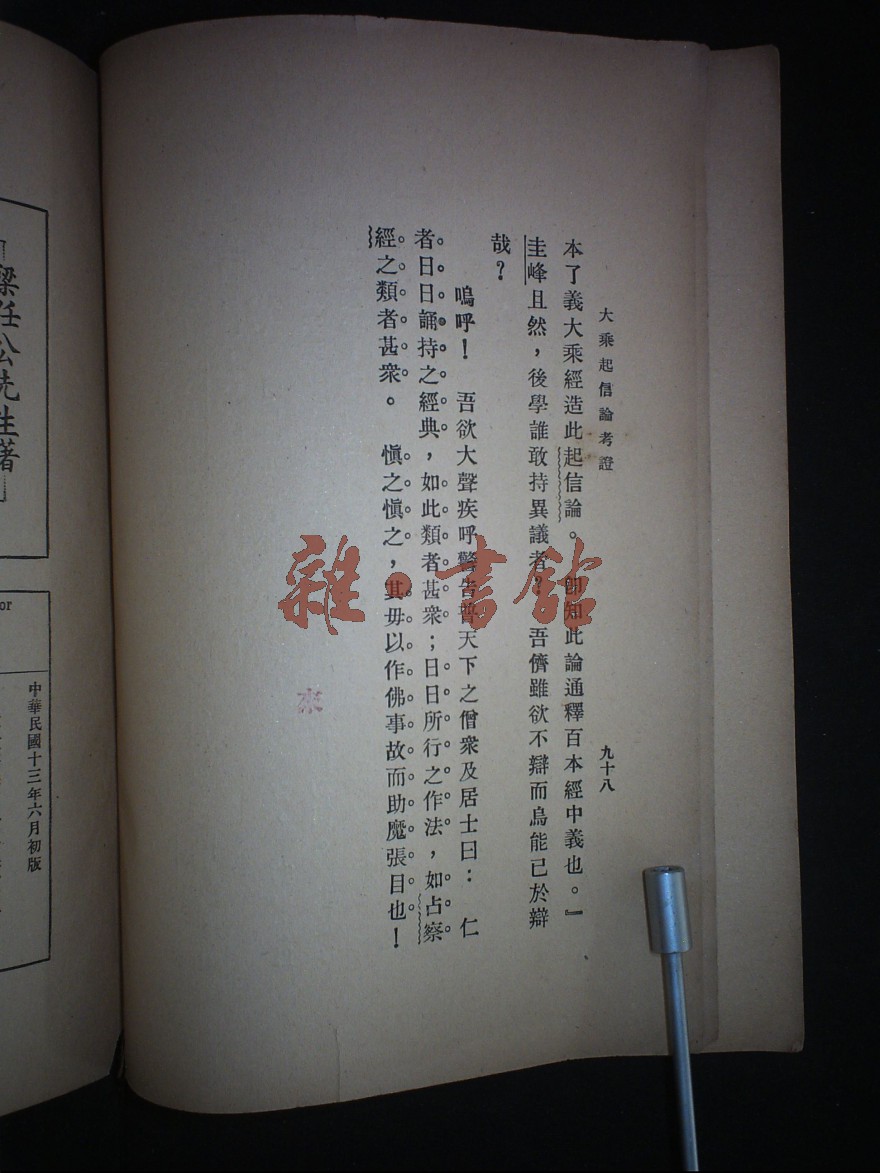 大乘起信論考證
九十八
本了義大乘經造此起信論。卽知此論通釋百本經中義也。』
圭峰且然，後學誰敢持異議者？　吾儕雖欲不辯而烏能已於辯
哉？
嗚呼！　吾欲大聲疾呼警告普天下之僧衆及居士曰：　仁
者日日誦持之經典，如此類者甚衆；日日所行之作法，如占察
經之類者甚衆。　愼之愼之，其毋以作佛事故而助魔張目也！
雜·書館
梁任公先生著
中華民國十三年六月初版
or